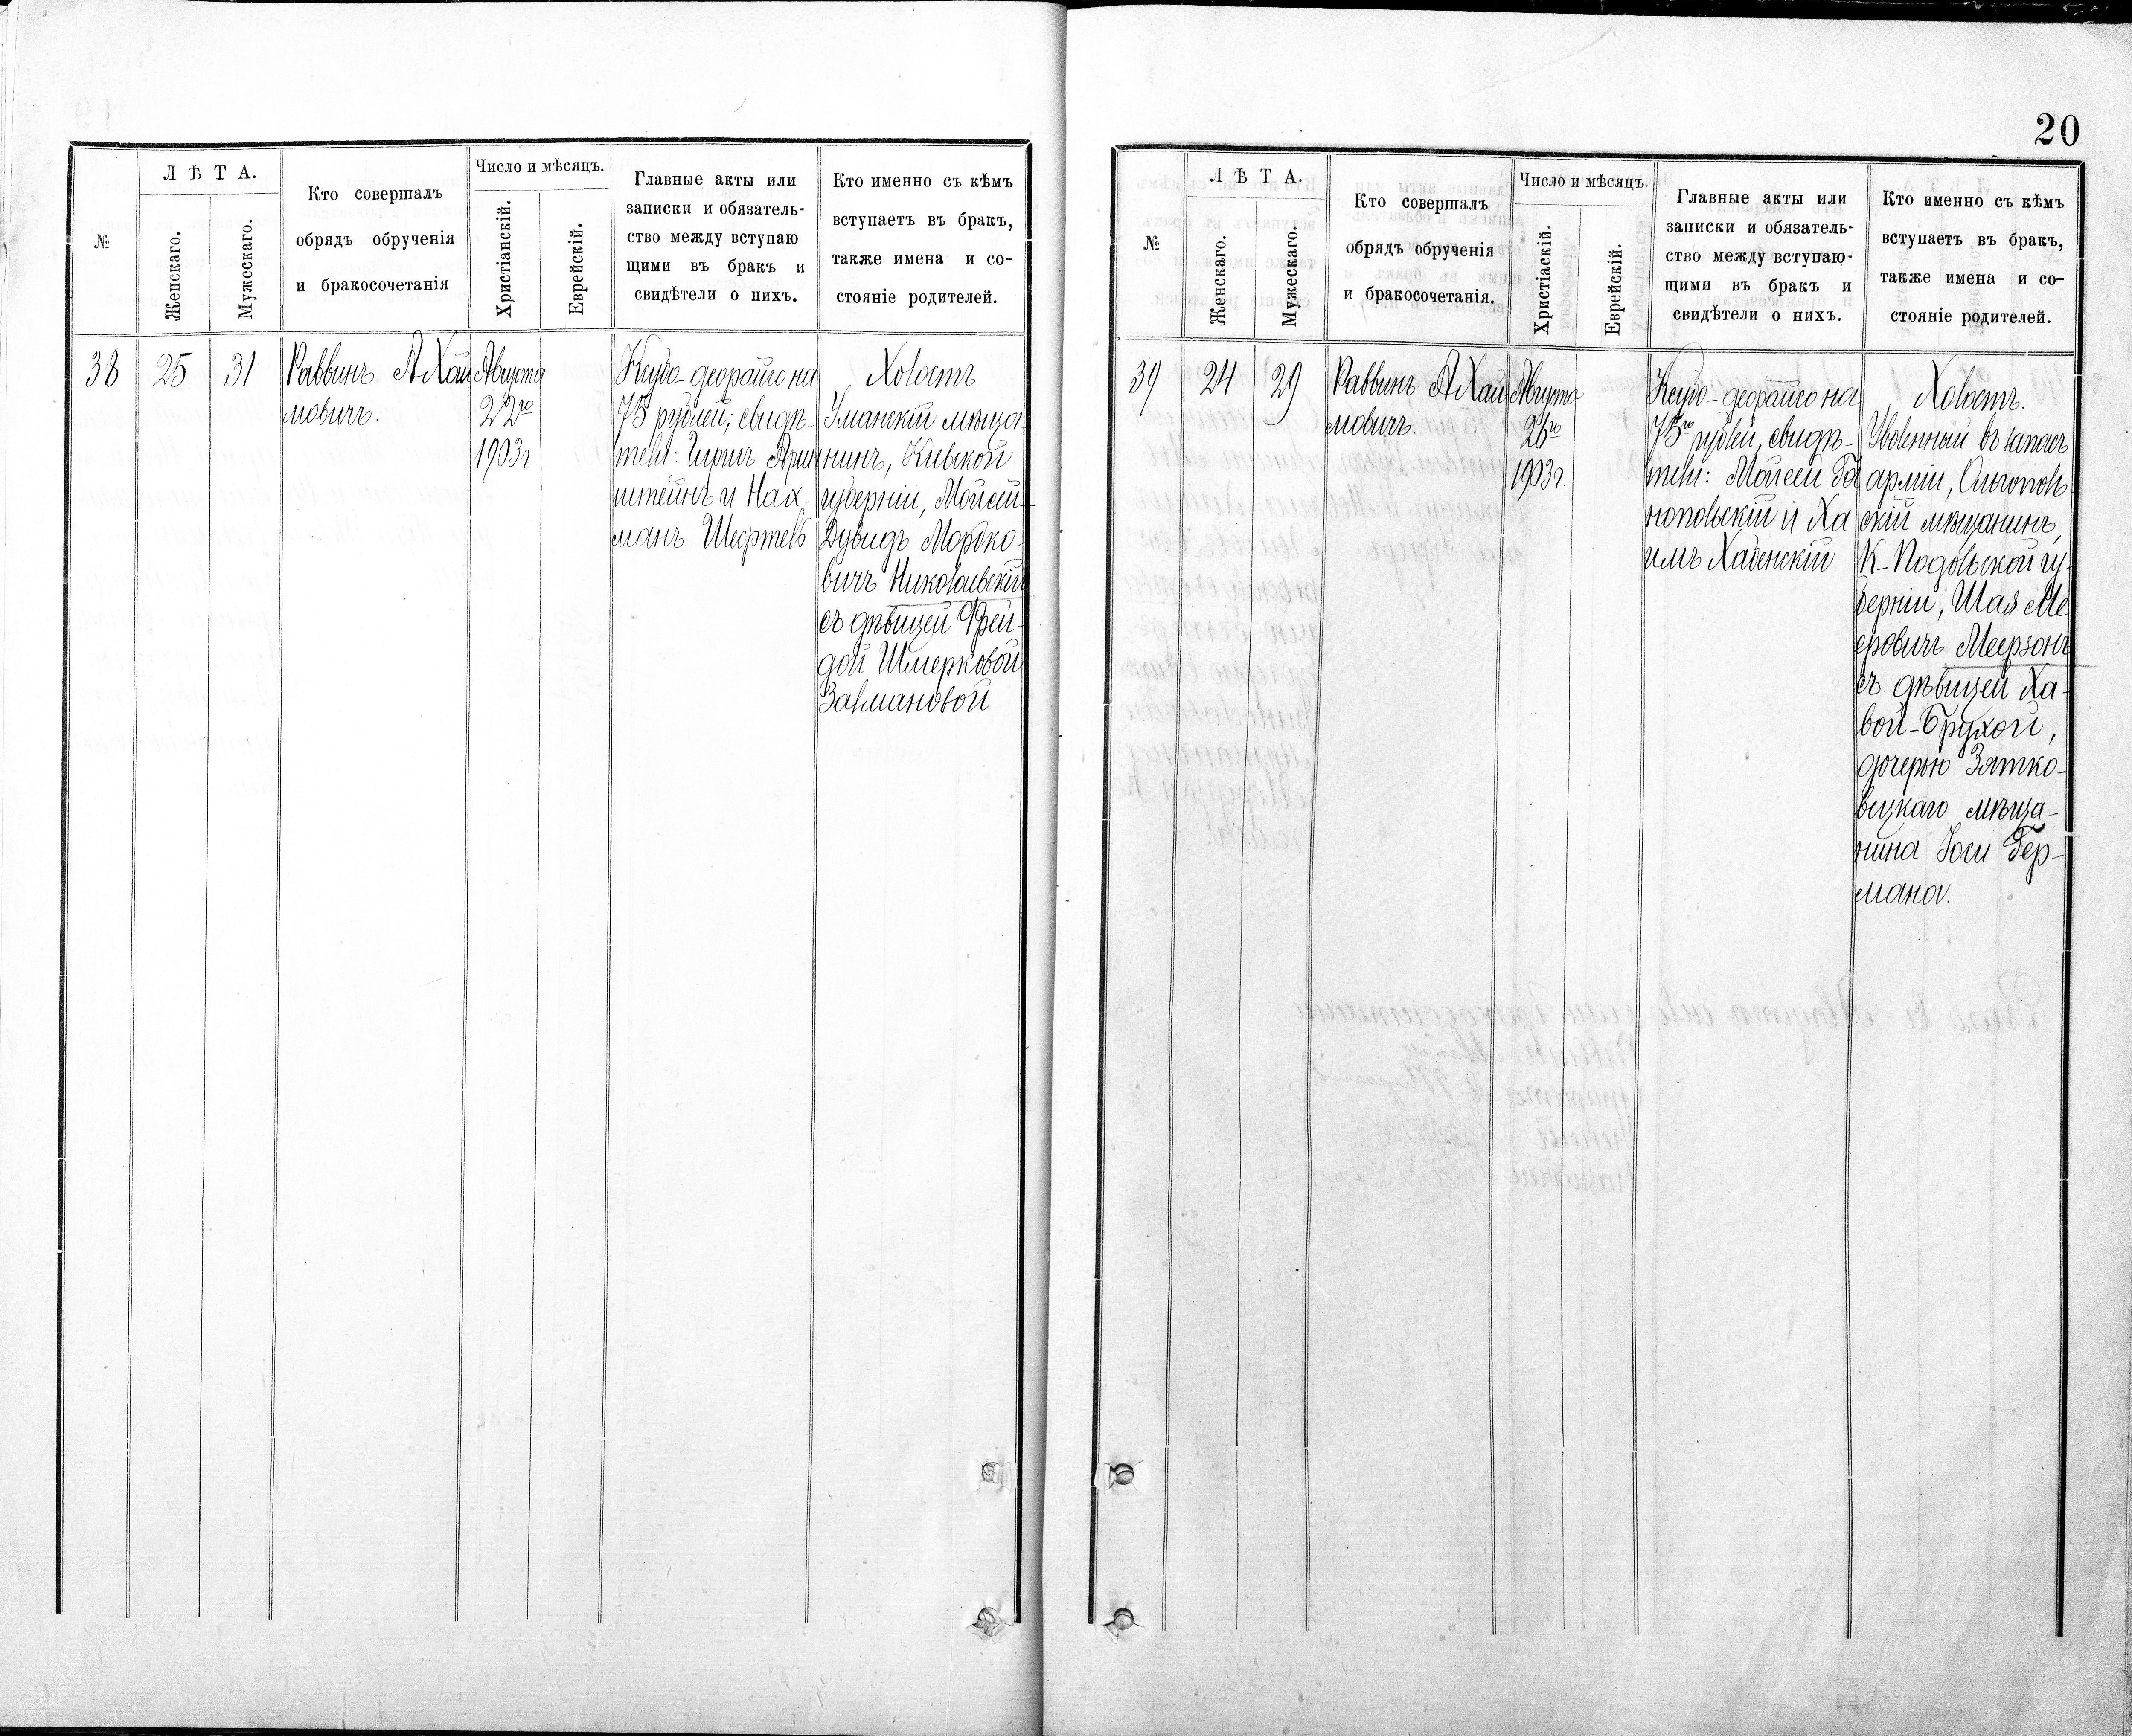 №
Л Ѣ Т А.
Женскаго.
Мужескаго.
Кто совершалъ
обрядъ обрученія
и бракосочетанія
Число и мѣсяцъ.
Христіанскій.
Еврейскій.
Главные акты или
записки и обязатель-
ство между вступаю
щими въ бракъ и
свидѣтели о нихъ.
Кто именно съ кѣмъ
вступаетъ въ бракъ,
также имена и со-
стояніе родителей.
38
25
31
Раввинъ А Хай
мовичъ.
Августа
22го
1903г.
на
75 рублей; свидѣ-
тели:
штейнъ и Нах-
манъ
Холостъ
Уманскій мѣща
нинъ, Кіевской
губерніи, Мойсей-
Дувидъ Мордко-
вичъ Николаевскій
съ дѣвицей Фрей-
дой Шмерковой
Залмановой
20
№
Л Ѣ Т А.
Женскаго.
Мужескаго.
Кто совершалъ
обрядъ обрученія
и бракосочетанія.
Число и мѣсяцъ.
Христіаскій.
Еврейскій.
Главные акты или
записки и обязатель-
ство между вступаю-
щими въ бракъ и
свидѣтели о нихъ.
Кто именно съ кѣмъ
вступаетъ въ бракъ,
также имена и со-
стояніе родителей.
39
24
29
Раввинъ А Хай
мовичъ.
Августа
26го
1903г.
на
75го рублей, свидѣ-
тели: Мойсей Га
нопольскій и Ха
имъ
Холостъ.
Уволенный въ запасъ
арміи, Ольгополь
скій мѣщанинъ,
К-Подольской гу-
берніи, Шая Ме
еровичъ Меерзонъ
съ дѣвицей Ха-
вой-Брухой,
дочерью Зятко-
вецкаго мѣща-
нина Іоси Гер-
мана.